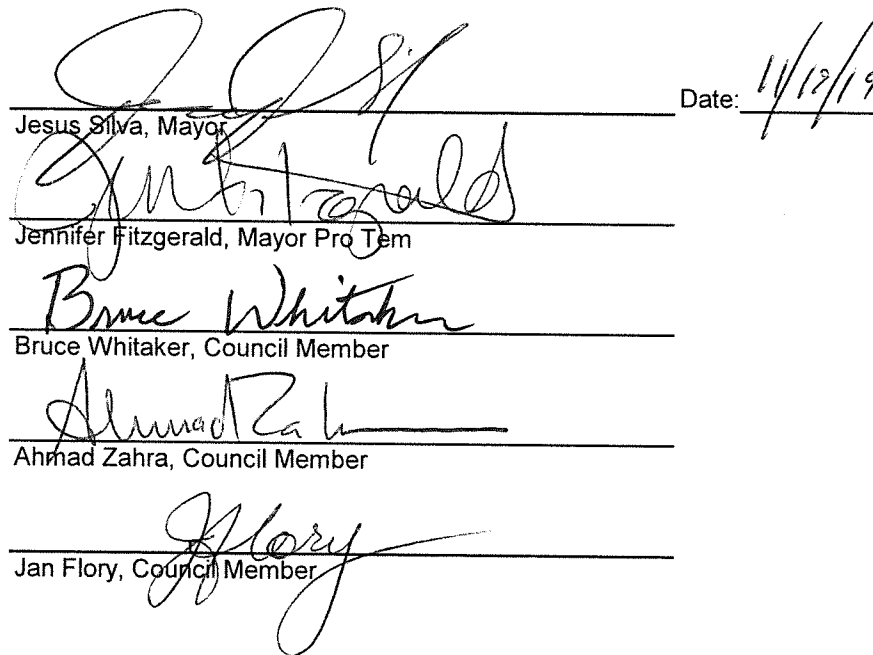 Jesus Silva, Mayor
Date: 11/12/19
Jennifer Fitzgerald
Jennifer Fitzgerald, Mayor Pro Tem
Bruce Whitaker
Bruce Whitaker, Council Member
Ahmad Zahra
Ahmad Zahra, Council Member
J Flory
Jan Flory, Council Member